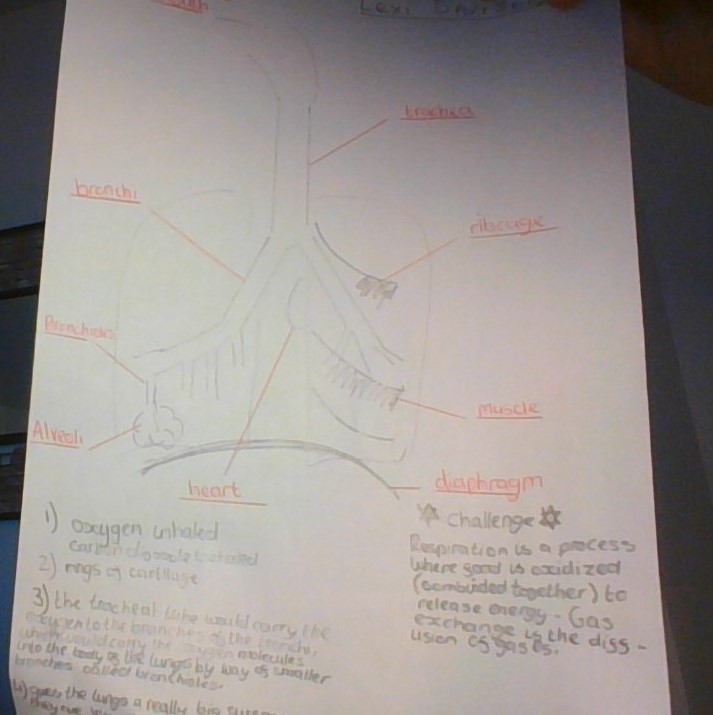 Lexi
brachea
bronchi
ribcage
Bronchioles
muscle
Alveoli
diaphragm
heart
1) oxygen inhaled
carbon dioxide exhaled
2) rings of cartilage
3) the tracheal tube would carry the
oxygen to the branches of the bronchi,
which would carry the oxygen molecules
into the body of the lungs by way of smaller
branches called bronchioles.
4) gives the lungs a really big
they are
☆ Challenge ☆
Respiration is a process
where good is oxidized
(combinded together) to
release energy - Gas
exchange is the diss -
usion of gases.